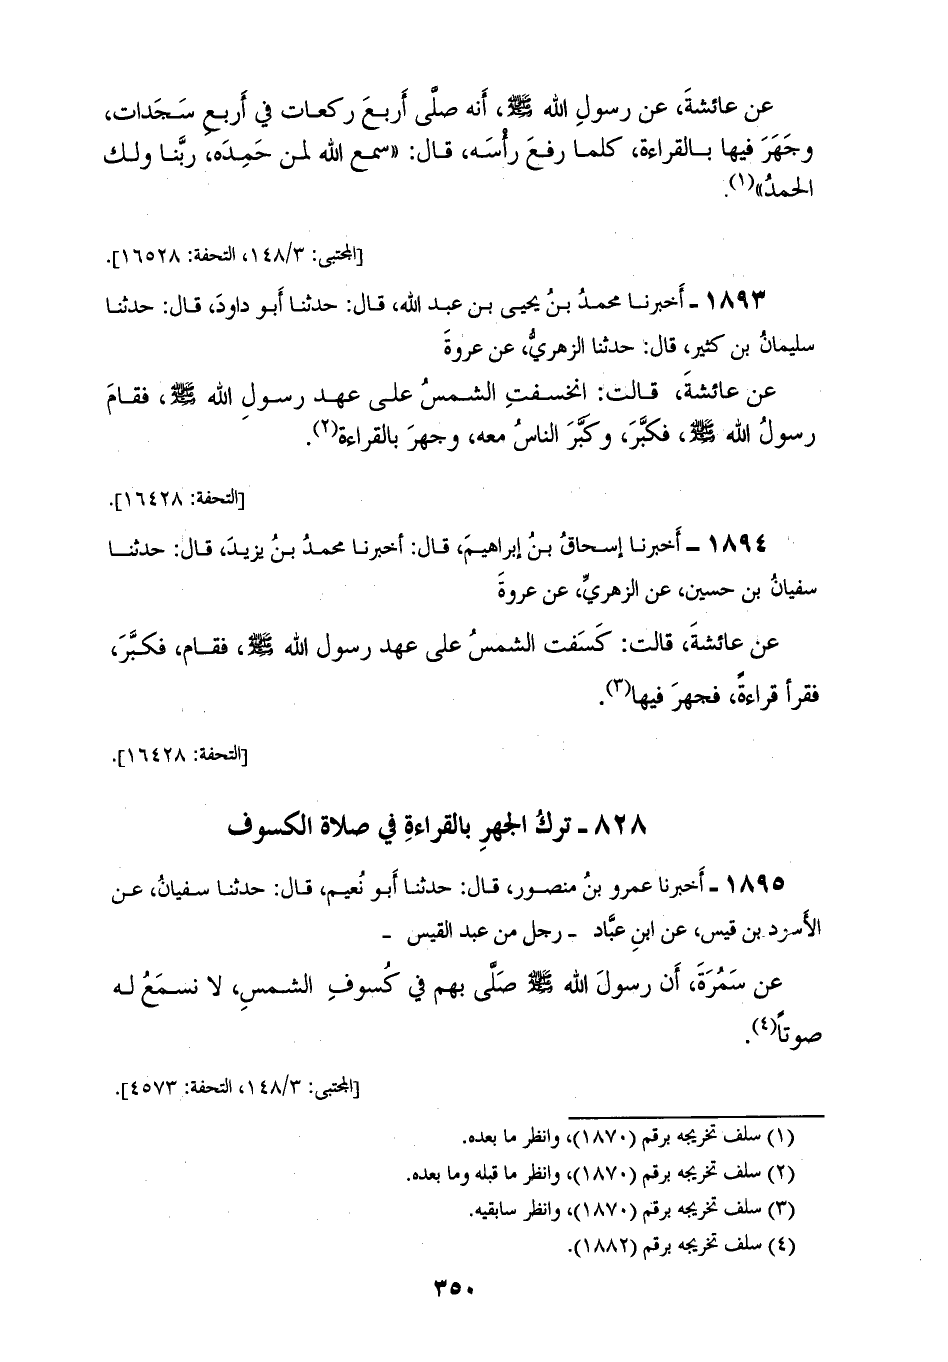 عن عائشةَ، عن رسولِ الله ﷺ، أنه صلَّى أَربعَ ركعات في أَربعِ سَجَدات،
وجَهَرَ فيها بالقراءة، كلما رفعَ رأْسَه، قال: «سمع الله لمن حَمِدَه، ربَّنا ولك
الحمدُ»(١).
[المجتبى: ١٤٨/٣، التحفة: ١٦٥٢٨].
١٨٩٣ ـ أَخبرنا محمدُ بنُ يحيى بن عبد الله، قال: حدثنا أَبو داودَ، قال: حدثنا
سليمانُ بن كثير، قال: حدثنا الزهريُّ، عن عروةَ
عن عائشةَ، قالت: انخسفتِ الشمسُ على عهد رسولِ الله ﷺ، فقامَ
رسولُ الله ﷺ، فكبَّرَ، وكبَّرَ الناسُ معه، وجهرَ بالقراءة(٢).
[التحفة: ١٦٤٢٨].
١٨٩٤ ـ أَخبرنا إسحاقُ بنُ إبراهيمَ، قال: أخبرنا محمدُ بنُ يزيدَ، قال: حدثنا
سفيانُ بن حسين، عن الزهريِّ، عن عروةَ
عن عائشةَ، قالت: كَسَفت الشمسُ على عهد رسول الله ﷺ، فقام، فكبَّرَ،
فقرأ قراءةً، فجهرَ فيها(٣).
[التحفة: ١٦٤٢٨].
٨٢٨ ـ تركُ الجهرِ بالقراءةِ في صلاة الكسوف
١٨٩٥ ـ أَخبرنا عمرو بنُ منصور، قال: حدثنا أَبو نُعيم، قال: حدثنا سفيانُ، عن
الأَسود بن قيس، عن ابنِ عبَّاد ـ رجل من عبد القيس ـ
عن سَمُرَةَ، أَن رسولَ الله ﷺ صلَّى بهم في كُسوفِ الشمسِ، لا نسمَعُ له
صوتاً(٤).
[المجتبى: ١٤٨/٣، التحفة: ٤٥٧٣].
(١) سلف تخريجه برقم (١٨٧٠)، وانظر ما بعده.
(٢) سلف تخريجه برقم (١٨٧٠)، وانظر ما قبله وما بعده.
(٣) سلف تخريجه برقم (١٨٧٠)، وانظر سابقيه.
(٤) سلف تخريجه برقم (١٨٨٢).
٣٥٠